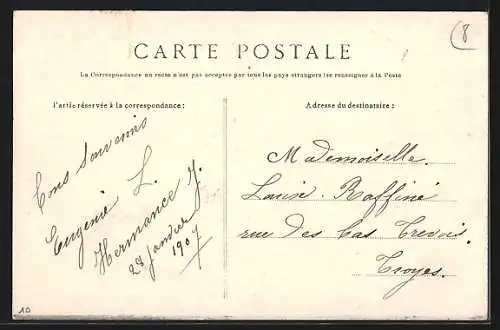 8
CARTE POSTALE
La Correspondance au recto n'est pas acceptée par tous les pays étrangers (se renseigner à la Poste
Partie réservée à la correspondance :
Bons Souvenirs
Eugénie L.
Hermance J.
28 janvier
1907
Adresse du destinataire :
Mademoiselle
Louise Raffiné
rue des bas Trevois.
Troyes.
AD